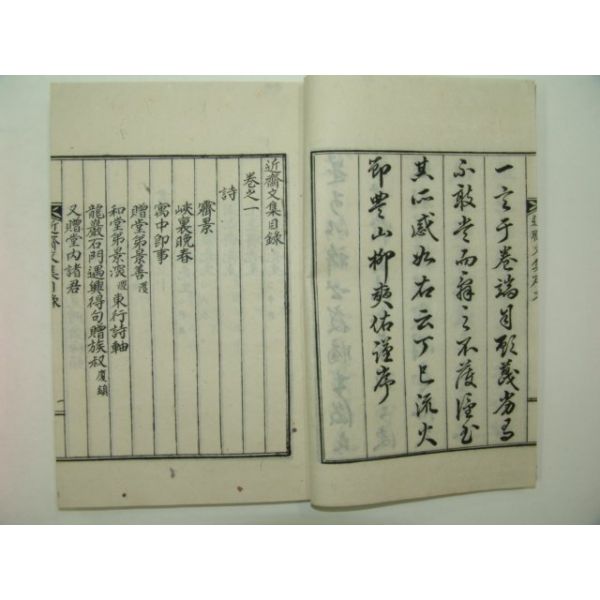 一言于卷端自顧蔑劣
不敢當而辭之不獲
其所感如右云丁巳流火
節豊山柳奭佑謹序
近齋文集目錄
卷之一
詩
齋景
峽裏晩春
寓中卽事
贈堂弟景善
和堂弟景演東行詩軸
龍巖石門遇興得句贈族叔
又贈堂內諸君
近齋文集目錄